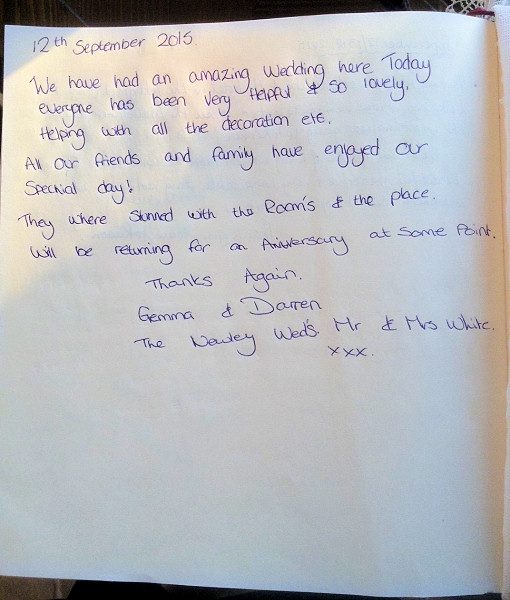 12th September 2015.
We have had an amazing wedding here Today
everyone has been very Helpful & so lovely.
Helping with all the decoration etc.
All our friends and family have enjoyed our
Speciial day!
They where stunned with the Room's & the place.
Will be returning for an Aniversary at some Point.
Thanks Again.
Gemma & Darren
The Newley Wed's. Mr & Mrs White.
xxx.